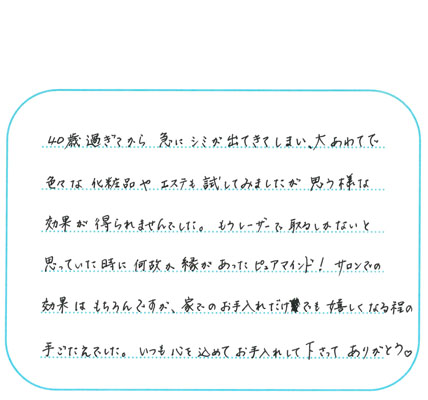 40歳過ぎてから 急に シミが出てきてしまい、大あわてで
色々な 化粧品や エステも 試してみましたが 思う様な
効果が 得られませんでした。もうレーザーで 取るしかないと
思っていた時に 何故か 縁が あった ピュアマインド! サロンでの
効果は もちろんですが、家でのお手入れだけでも 嬉しくなる程の
手ごたえでした。いつも 心を込めて お手入れして下さって ありがとう♡